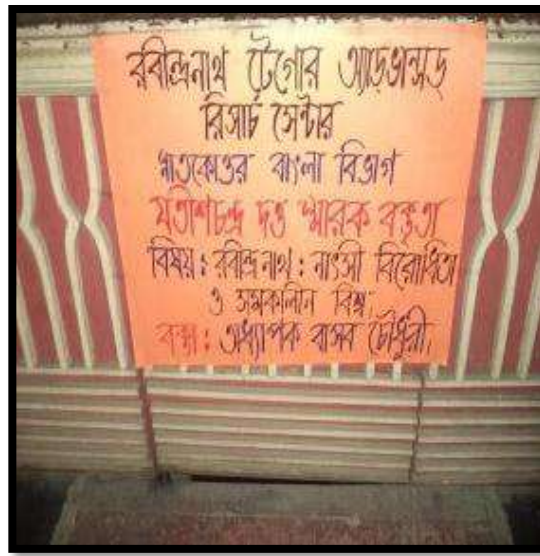 রবীন্দ্রনাথ টেগোর অ্যাডভান্সড্
রিসার্চ সেন্টার
স্নাতকোত্তর বাংলা বিভাগ
যতীশচন্দ্র দত্ত স্মারক বক্তৃতা
বিষয়ঃ রবীন্দ্রনাথঃ নাৎসী বিরোধিতা
ও সমকালীন বিশ্ব;
বক্তাঃ অধ্যাপক বাসব চৌধুরী,